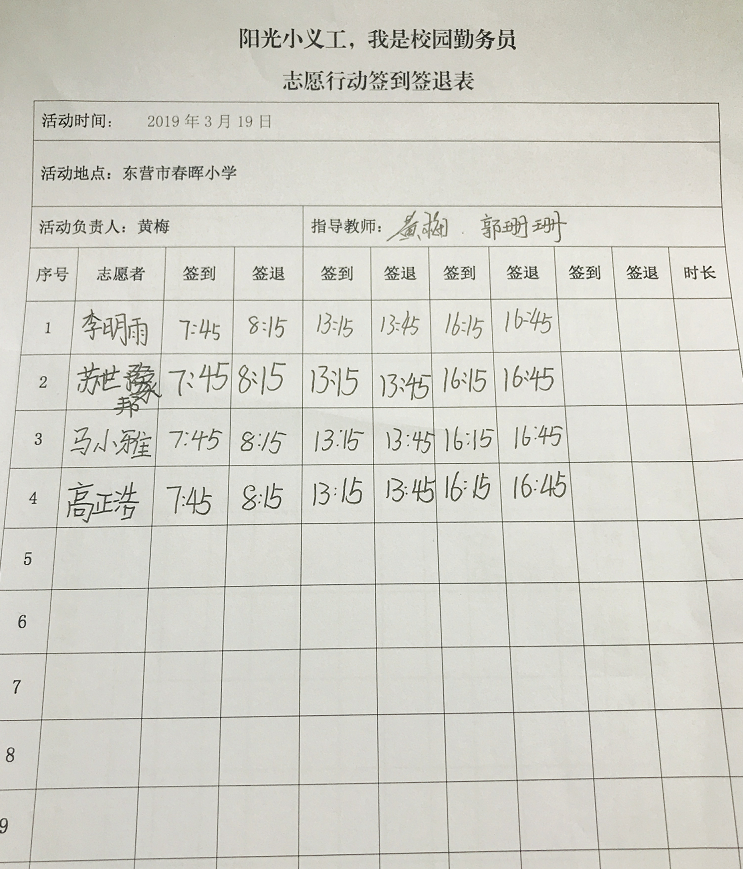 阳光小义工，我是校园勤务员
志愿行动签到签退表
活动时间： 2019年3月19日
活动地点：东营市春晖小学
活动负责人：黄梅 指导教师：黄梅 郭珊珊
序号 志愿者 签到 签退 签到 签退 签到 签退 签到 签退 时长
1 李明雨 7:45 8:15 13:15 13:45 16:15 16:45
2 苏世邦 7:45 8:15 13:15 13:45 16:15 16:45
3 马小雅 7:45 8:15 13:15 13:45 16:15 16:45
4 高正浩 7:45 8:15 13:15 13:45 16:15 16:45
5
6
7
8
9